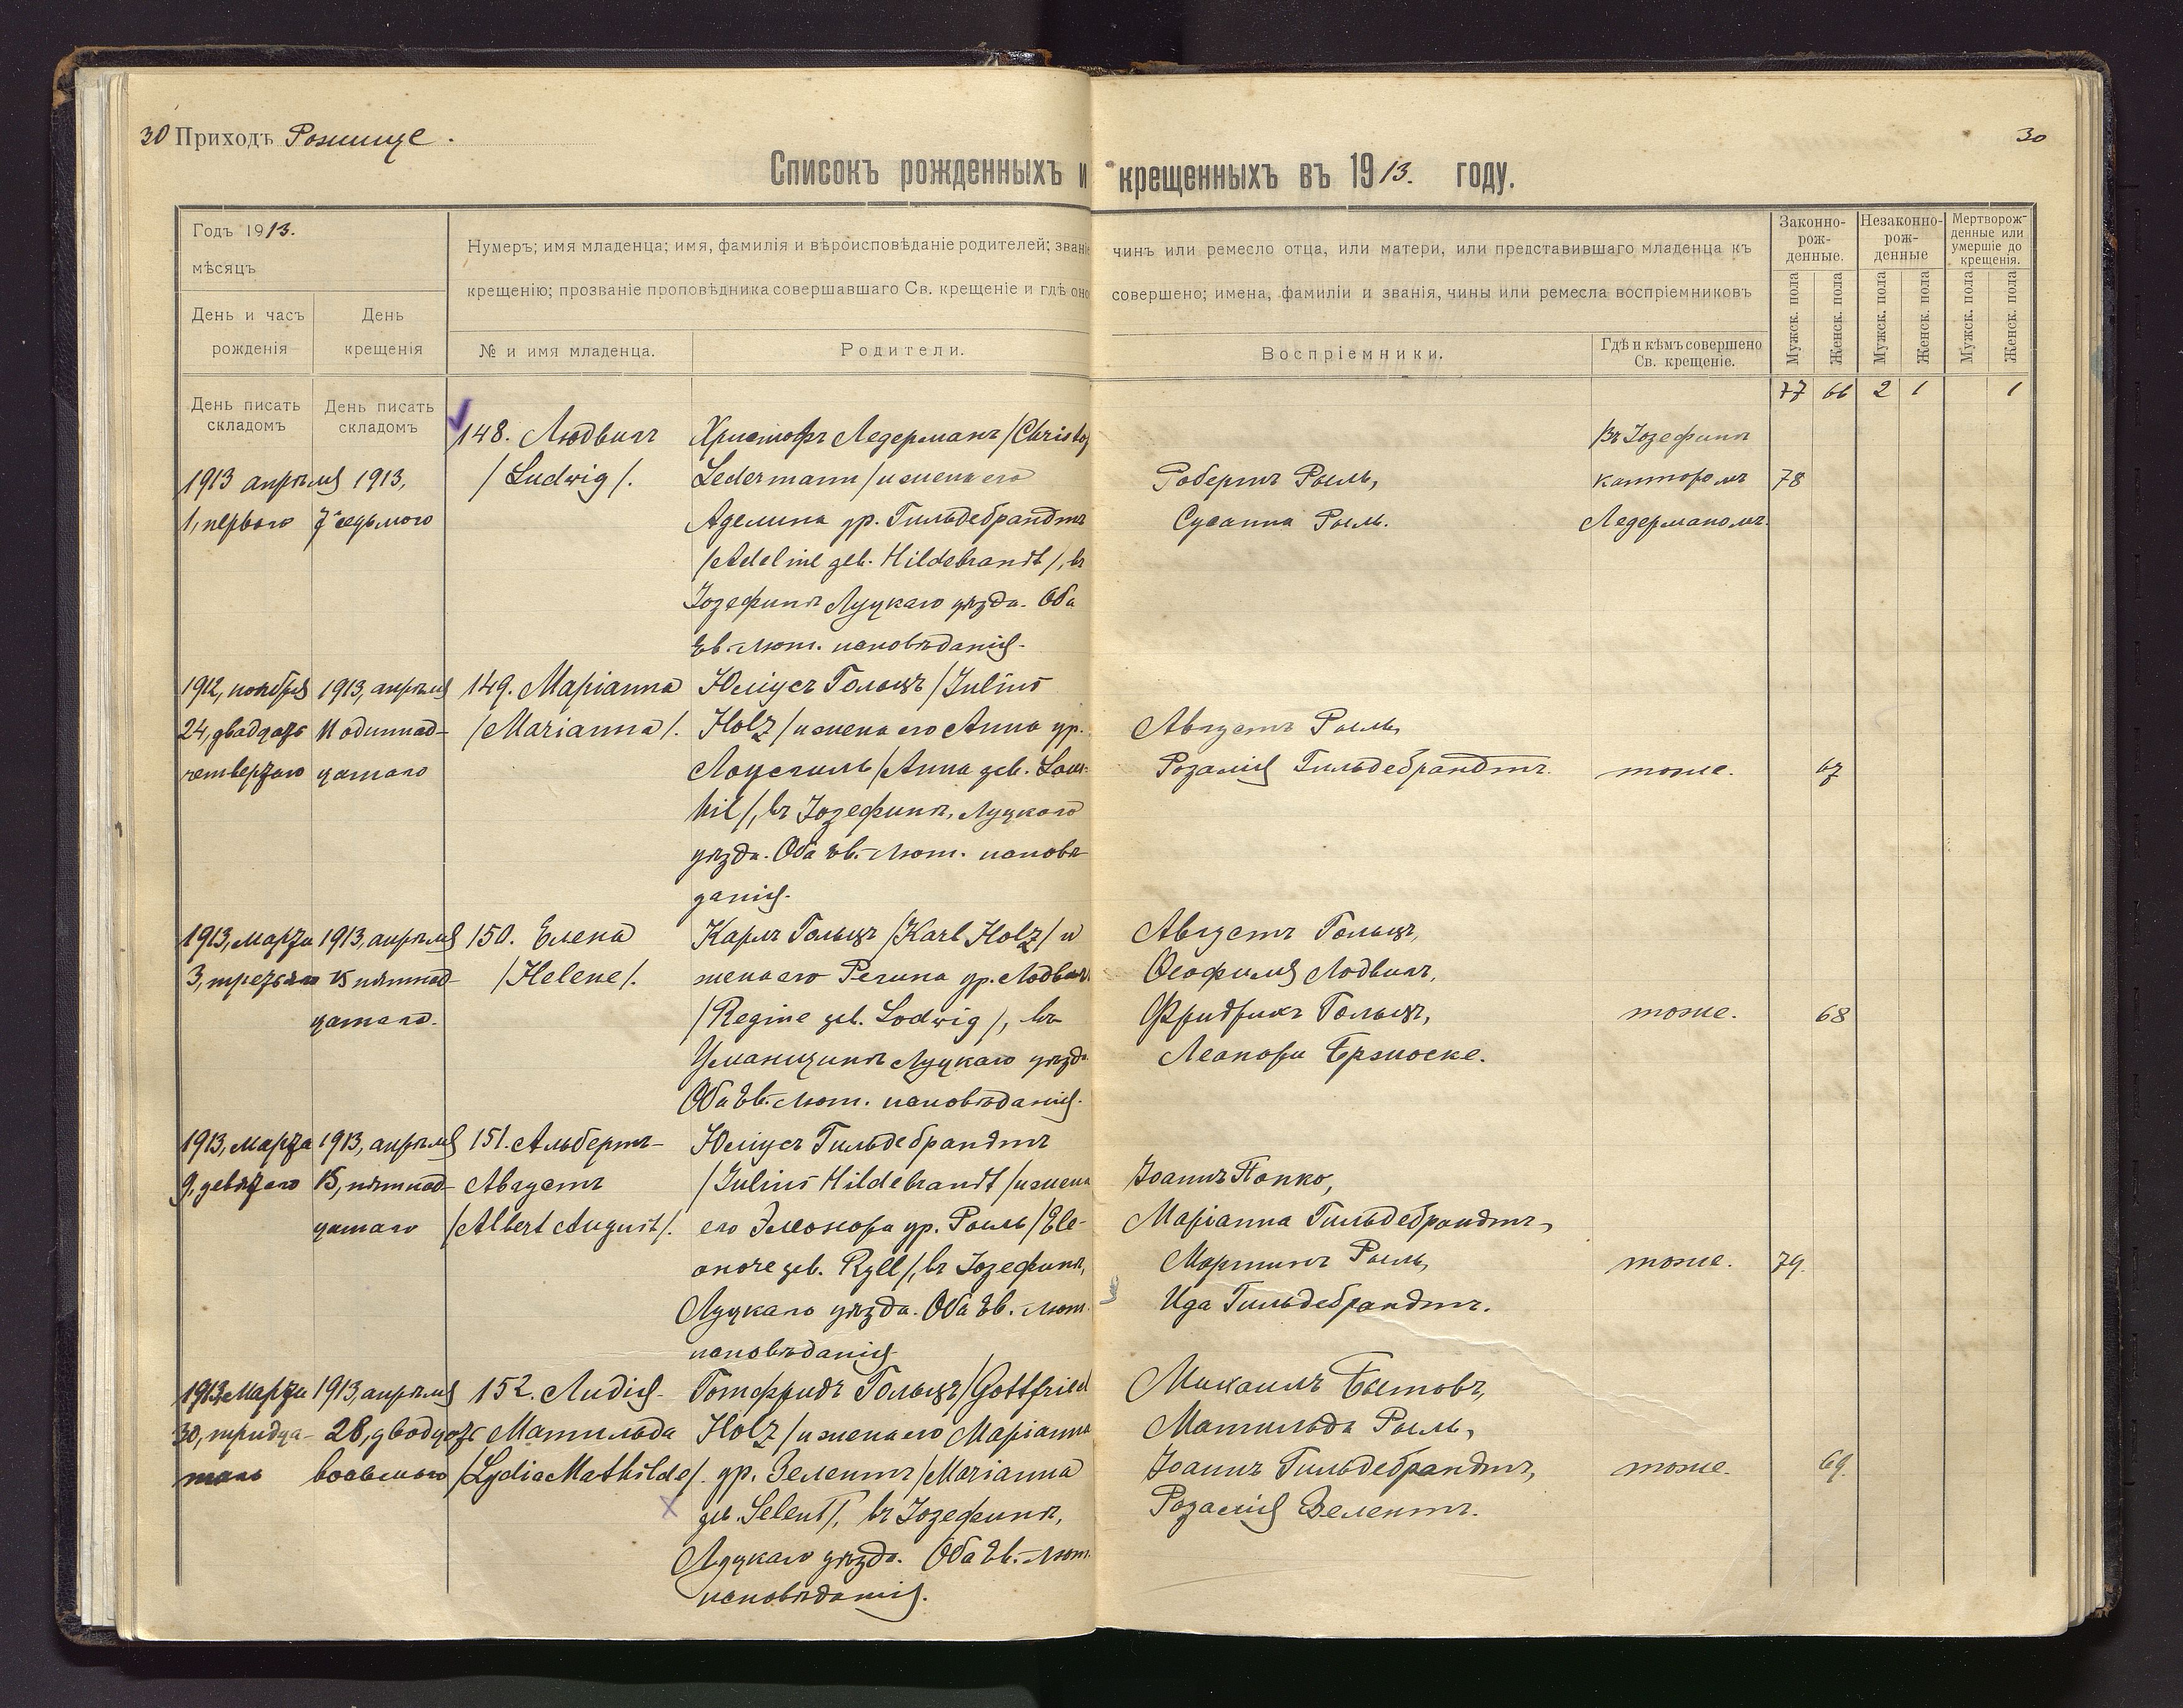 30 Приходъ Рожище.
30
Списокъ рожденныхъ и крещенныхъ въ 1913. году.
Годъ 1913.
мѣсяцъ
День и часъ рожденія
День крещенія
Нумеръ; имя младенца; имя, фамилія и вѣроисповѣданіе родителей; званіе чинъ или ремесло отца, или матери, или представившаго младенца къ
крещенію; прозваніе проповѣдника совершавшаго Св. крещеніе и гдѣ оно совершено; имена, фамиліи и званія, чины или ремесла воспріемниковъ
№ и имя младенца.
Родители.
Воспріемники.
Гдѣ и кѣмъ совершено
Св. крещеніе.
Законно-
рож-
денные.
Незаконно-
рож-
денные
Мертворож-
денные или
умершіе до
крещенія.
Мужск. пола
Женск. пола
Мужск. пола
Женск. пола
Мужск. пола
Женск. пола
77 66 2 1 1
День писать
складомъ
День писать
складомъ
1913 апрѣля
1, перваго
1913,
7 седьмого
148. Людвигъ
/Ludwig/.
Христофъ Ледерманъ /Christof
Ledermann/ и жена его
Аделина ур. Гильдебрандтъ
/Adeline geb. Hildebrandt/, въ
Іозефинѣ Луцкаго уѣзда. Оба
Ев.-Лют. исповѣданія.
Робертъ Рыль,
Сусанна Рыль.
Въ Іозефинѣ
канторомъ
Ледерманомъ.
78
1912, ноября
24, двадцать
четвертаго
1913, апрѣля
11 одиннад-
цатаго
149. Маріанна
/Marianna/.
Юліусъ Гольцъ /Julius
Holz/ и жена его Анна ур.
/Anna geb. Laus-
/, въ Іозефинѣ, Луцкаго
уѣзда. Оба Ев.-Лют. исповѣ-
данія.
Августъ Рыль,
Розалія Гильдебрандтъ.
тоже.
67
1913, марта
3, третьяго
1913, апрѣля
15 пятнад-
цатаго.
150. Елена
/Helene/.
Карлъ Гольцъ /Karl Holz/ и
жена его Регина ур. Лодвигъ
/Regine geb. Lodwig/, въ
Уманщинѣ Луцкаго уѣзда
Оба Ев.-Лют. исповѣданія.
Августъ Гольцъ,
Ѳеофилія Лодвигъ,
Фридрихъ Гольцъ,
Леонора Бржоске.
тоже.
68
1913, марта
9, девятаго
1913, апрѣля
15, пятнад-
цатаго
151. Альбертъ-
Августъ
/Albert August/.
Юліусъ Гильдебрандтъ
/Julius Hildebrandt/ и жена
его Элеонора ур. Рыль /Ele-
onore geb. Ryll/, въ Іозефинѣ,
Луцкаго уѣзда. Оба Ев.-Лют.
исповѣданія
Іоаннъ Попко,
Маріанна Гильдебрандтъ,
Мартинъ Рыль,
Ида Гильдебрандтъ.
тоже.
79.
1913, марта
30, тридца-
таго
1913, апрѣля
28, двадцать
восьмого
152. Лидія-
Матильда
/Lydia Mathilde/.
Готфридъ Гольцъ /Gottfried
Holz/ и жена его Маріанна
ур. Зелентъ /Marianna
geb. Selent/, въ Іозефинѣ,
Луцкаго уѣзда. Оба Ев.-Лют.
исповѣданія.
Михаилъ Бытовъ,
Матильда Рыль,
Іоаннъ Гильдебрандтъ,
Розалія Зелентъ.
тоже.
69.